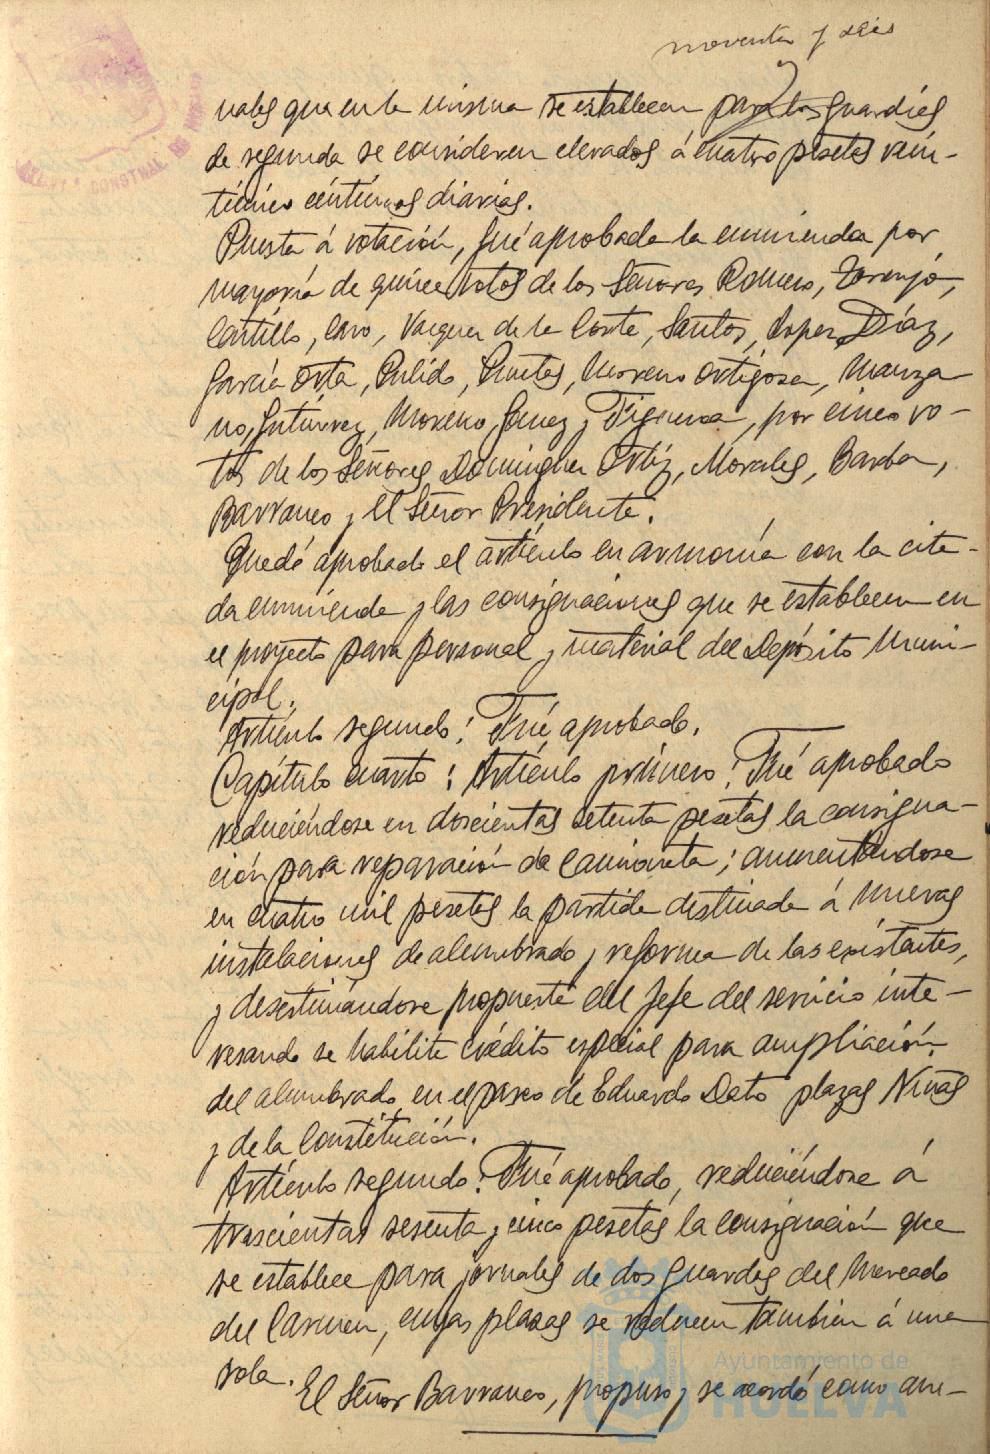 noventa y seis
nales que en la misma se establecen para los guardias
de segunda se consideren elevados á cuatro pesetas vein-
ticinco céntimos diarias.
Puesta á votación, fué aprobada la enmienda por
mayoría de quince votos de los Señores Romero, Toronjo,
Castillo, Caro, Vazquez de la Corte, Santos, Lopez Díaz,
García Orta, Pulido, Fuentes, Moreno Ortigosa, Manza
no, Gutiérrez, Moreno Gomez y Figueroa, por cinco vo-
tos de los Señores Dominguez Ortiz, Morales, Barba,
Barranco y el Señor Presidente.
Quedó aprobado el artículo en armonía con la cita-
da enmienda y las consignaciones que se establecen en
el proyecto para personal y material del Depósito Muni-
cipal.
Artículo segundo: Fué aprobado.
Capítulo cuarto: Artículo primero: Fué aprobado
reduciéndose en doscientas setenta pesetas la consigna-
ción para reparación de camioneta; aumentándose
en cuatro mil pesetas la partida destinada á nuevas
instalaciones de alumbrado y reforma de las existentes,
y desestimándose propuesta del Jefe del servicio inte-
resando se habilite crédito especial para ampliación
del alumbrado en el paseo de Eduardo Dato plazas Niñas
y de la Constitución.
Artículo segundo: Fué aprobado, reduciéndose á
trescientas sesenta y cinco pesetas la consignación que
se establece para jornales de dos guardas del Mercado
del Carmen, cuyas plazas se reducen también á una
sola.
El Señor Barranco, propuso y se acordó como ane-
Ayuntamiento de
HUELVA